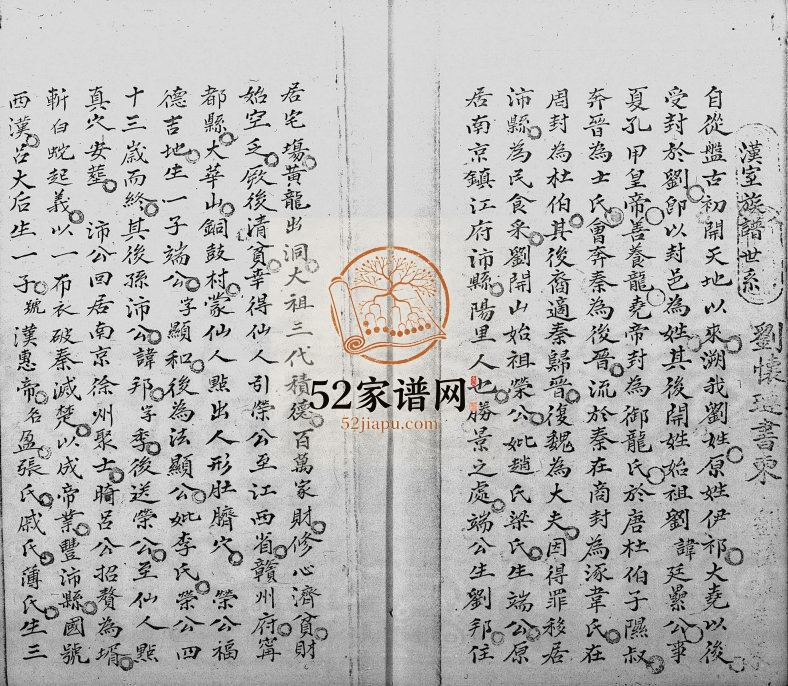 漢室族譜世系
劉懷璒書柬
自從盤古初開天地以來溯我劉姓原姓伊祁大堯以後
受封於劉卽以封邑為姓其後開姓始祖劉諱廷㬎公事
夏孔甲皇帝善養龍堯帝封為御龍氏於唐杜伯子隰叔
奔晉為士氏會奔秦為後晉流於秦在商封為豕韋氏在
周封為杜伯其後裔適秦歸晉復魏為大夫因得罪移居
沛縣為民食采劉開山始祖榮公妣趙氏梁氏生端公原
居南京鎮江府沛縣陽里人也勝景之處端公生劉邦住
居宅塲黃龍出洞大祖三代積德百萬家財修心濟貧財
始空乏厥後清貧幸得仙人引榮公至江西省贛州府甯
都縣大華山銅鼓村蒙仙人點出人形肚臍穴榮公福
德吉地生一子端公字顯和後為法顯公妣李氏榮公四
十三歲而終其後孫沛公諱邦字季後送榮公至仙人點
真穴安塟沛公回居南京徐州聚士暗呂公招贅為壻
斬白蛇起義以一布衣破秦滅楚以成帝業豐沛縣國號
西漢呂大后生一子號漢惠帝名盈張氏戚氏薄氏生三
52家谱网
52jiapu.com